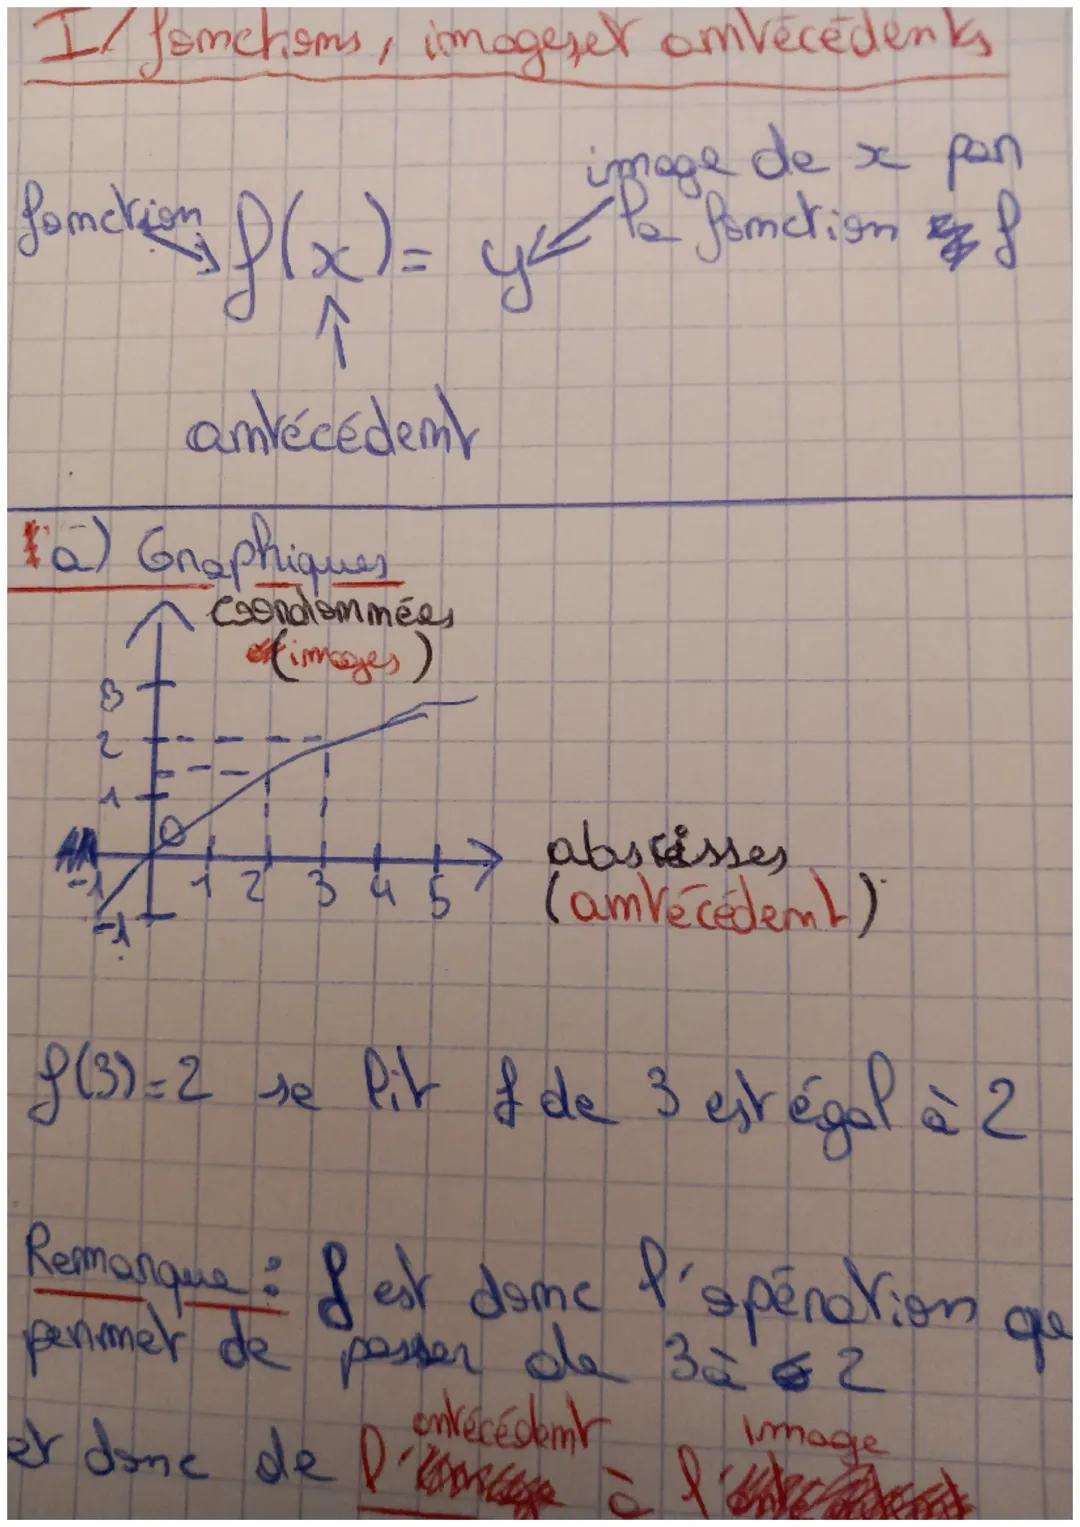 I/ fonctions, images et antécédents
image de x par
fonction f(x) = y la fonction f
antécédent
a) Graphiques
coordonnées
(images)
3
2
1
0
-1 1 2 3 4 5
-1
abscisses
(antécédent)
f(3)=2 se lit f de 3 est égal à 2
Remarque : f est donc l'opération que
permet de passer de 3 à 2
antécédent image
et donc de l' à l'